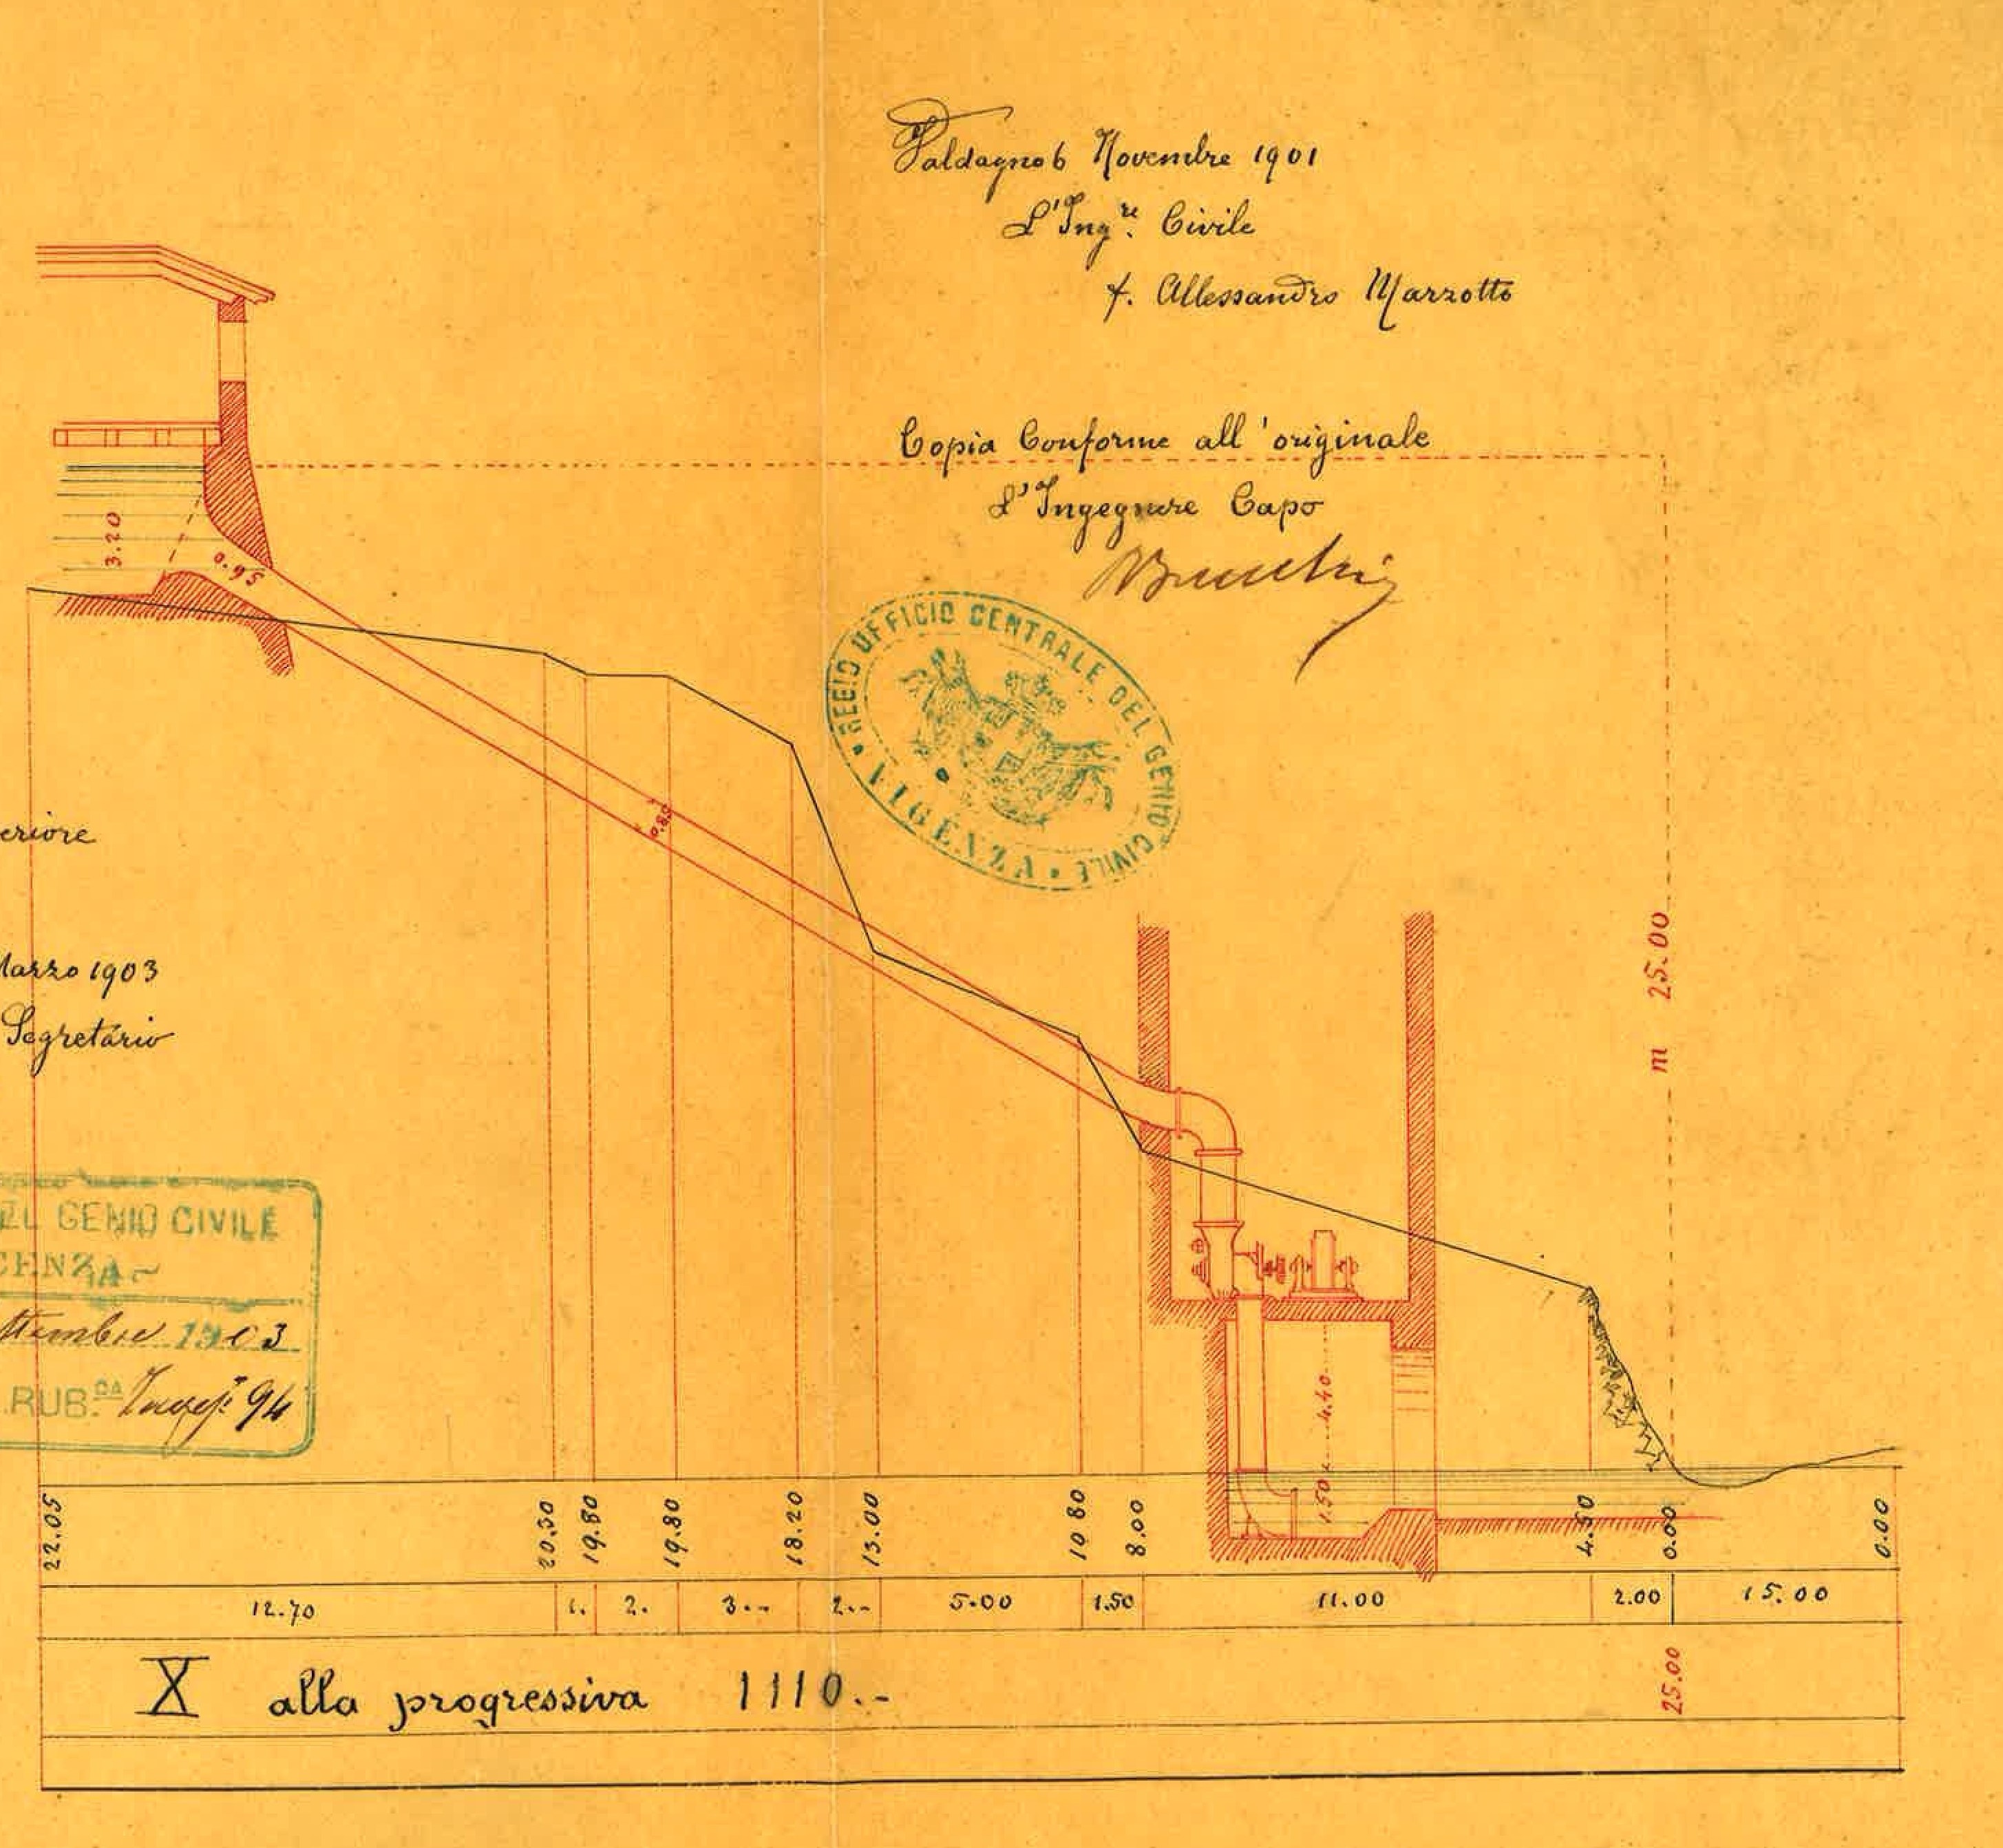 Valdagno 6 Novembre 1901
L'Ing.re Civile
f. Allessandro Marzotto
Copia Conforme all'originale
L'Ingegnere Capo
REGIO UFFICIO CENTRALE DEL GENIO CIVILE
VICENZA
3.20
0.95
0.85
eriore
Marzo 1903
Segretario
m 25.00
EL GENIO CIVILE
CENZA
ttembre 1903
RUB.DA 94
4.40
1.50
22.05 20.50 19.80 19.80 18.20 13.00 10 80 8.00 4.50 0.00 0.00
12.70 1. 2. 3.-- 2.-- 5.00 1.50 11.00 2.00 15.00
X alla progressiva 1110.-
25.00